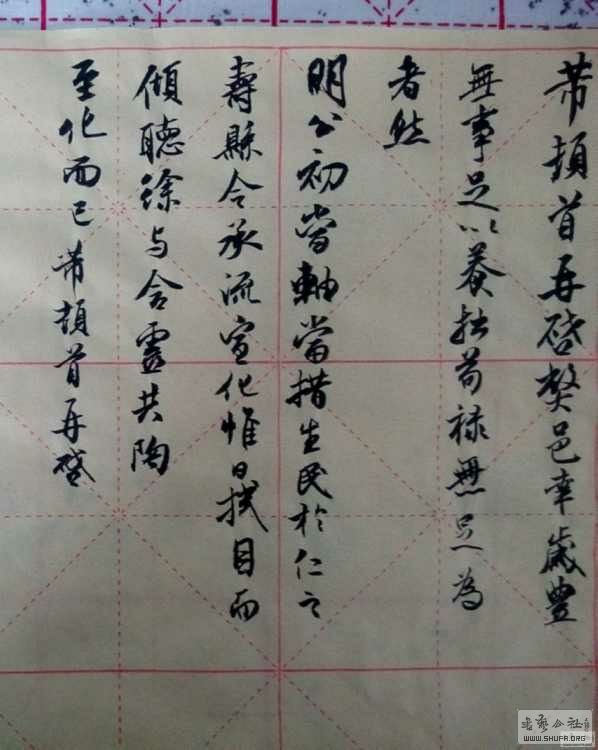 芾頓首再啓弊邑幸歲豊
無事足以養拙苟祿無足為
者然
明公初當軸當措生民於仁之
壽縣令承流宣化惟日拭目而
傾聽徐与含靈共陶
至化而已芾頓首再啓
書藝公社
WWW.SHUFA.ORG